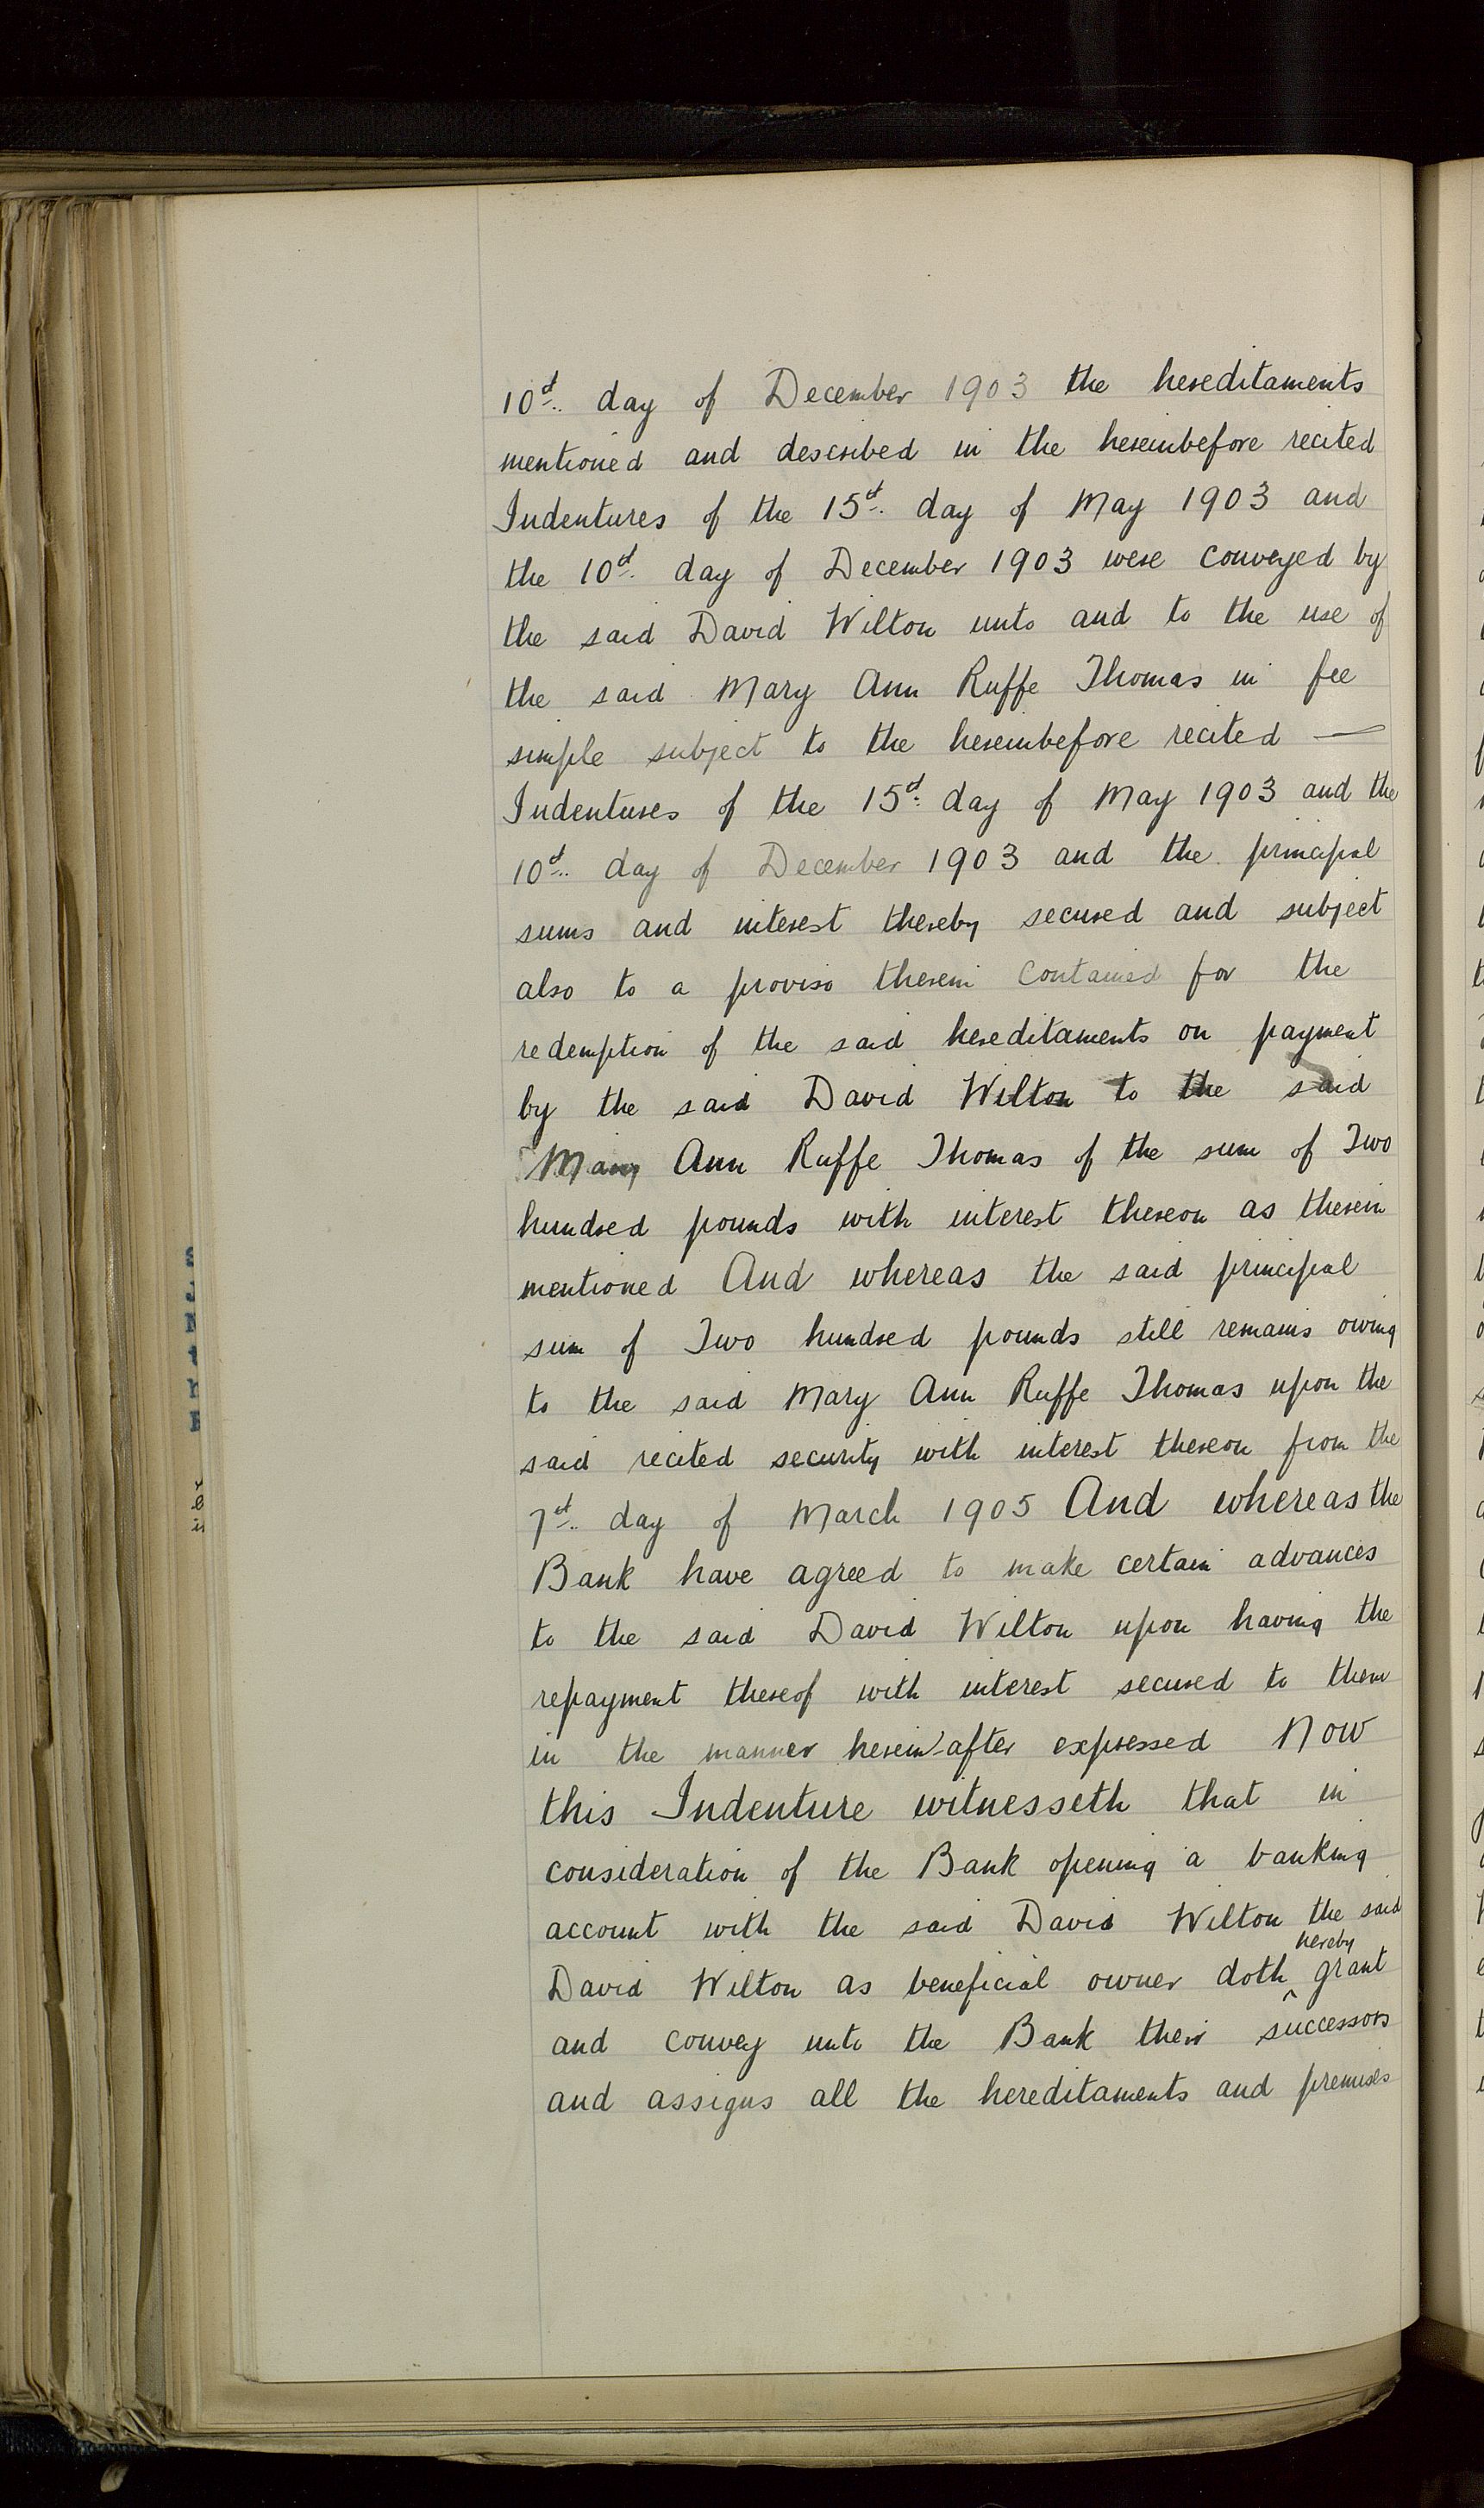 10th day of December 1903 the hereditaments
mentioned and described in the hereinbefore recited
Indentures of the 15th day of May 1903 and
the 10th day of December 1903 were conveyed by
the said David Wilton unto and to the use of
the said Mary Ann Ruffe Thomas in fee
simple subject to the hereinbefore recited —
Indentures of the 15th day of May 1903 and the
10th day of December 1903 and the principal
sums and interest thereby secured and subject
also to a proviso therein contained for the
redemption of the said hereditaments on payment
by the said David Wilton to the said
Mary Ann Ruffe Thomas of the sum of Two
hundred pounds with interest thereon as therein
mentioned And whereas the said principal
sum of Two hundred pounds still remains owing
to the said Mary Ann Ruffe Thomas upon the
said recited security with interest thereon from the
7th day of March 1905 And whereas the
Bank have agreed to make certain advances
to the said David Wilton upon having the
repayment thereof with interest secured to them
in the manner herein-after expressed Now
this Indenture witnesseth that in
consideration of the Bank opening a banking
account with the said David Wilton the said
David Wilton as beneficial owner doth hereby grant
and convey unto the Bank their successors
and assigns all the hereditaments and premises